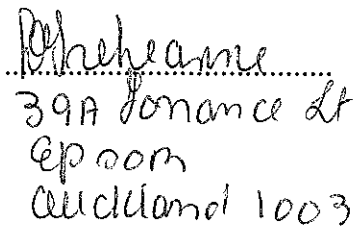 39A Ionance St
Epsom
Auckland 1003